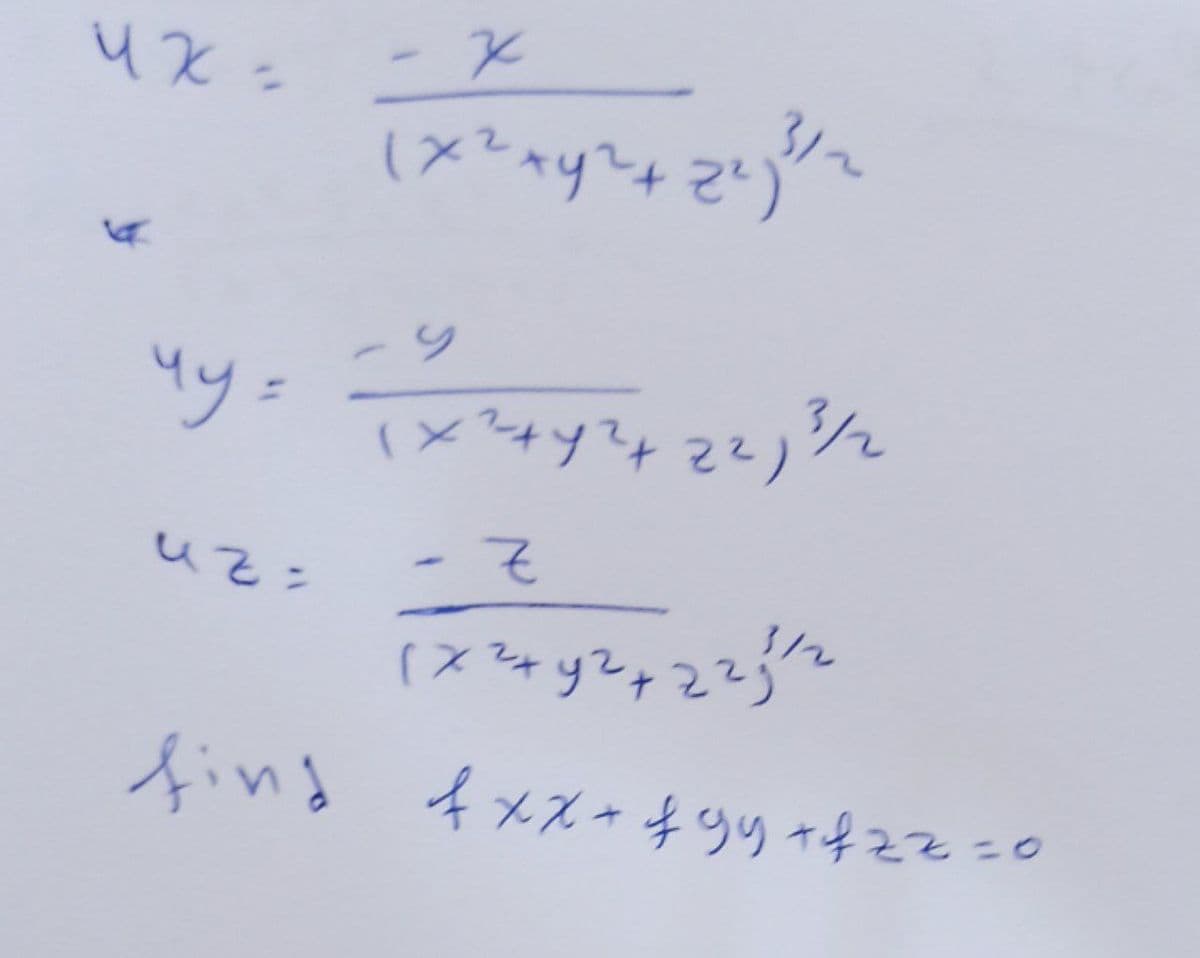 ux = - x
(x²+y²+z²)^3/2
uy = - y
(x²+y²+z²)^3/2
uz = - z
(x²+y²+z²)^3/2
find fxx + fyy + fzz = 0